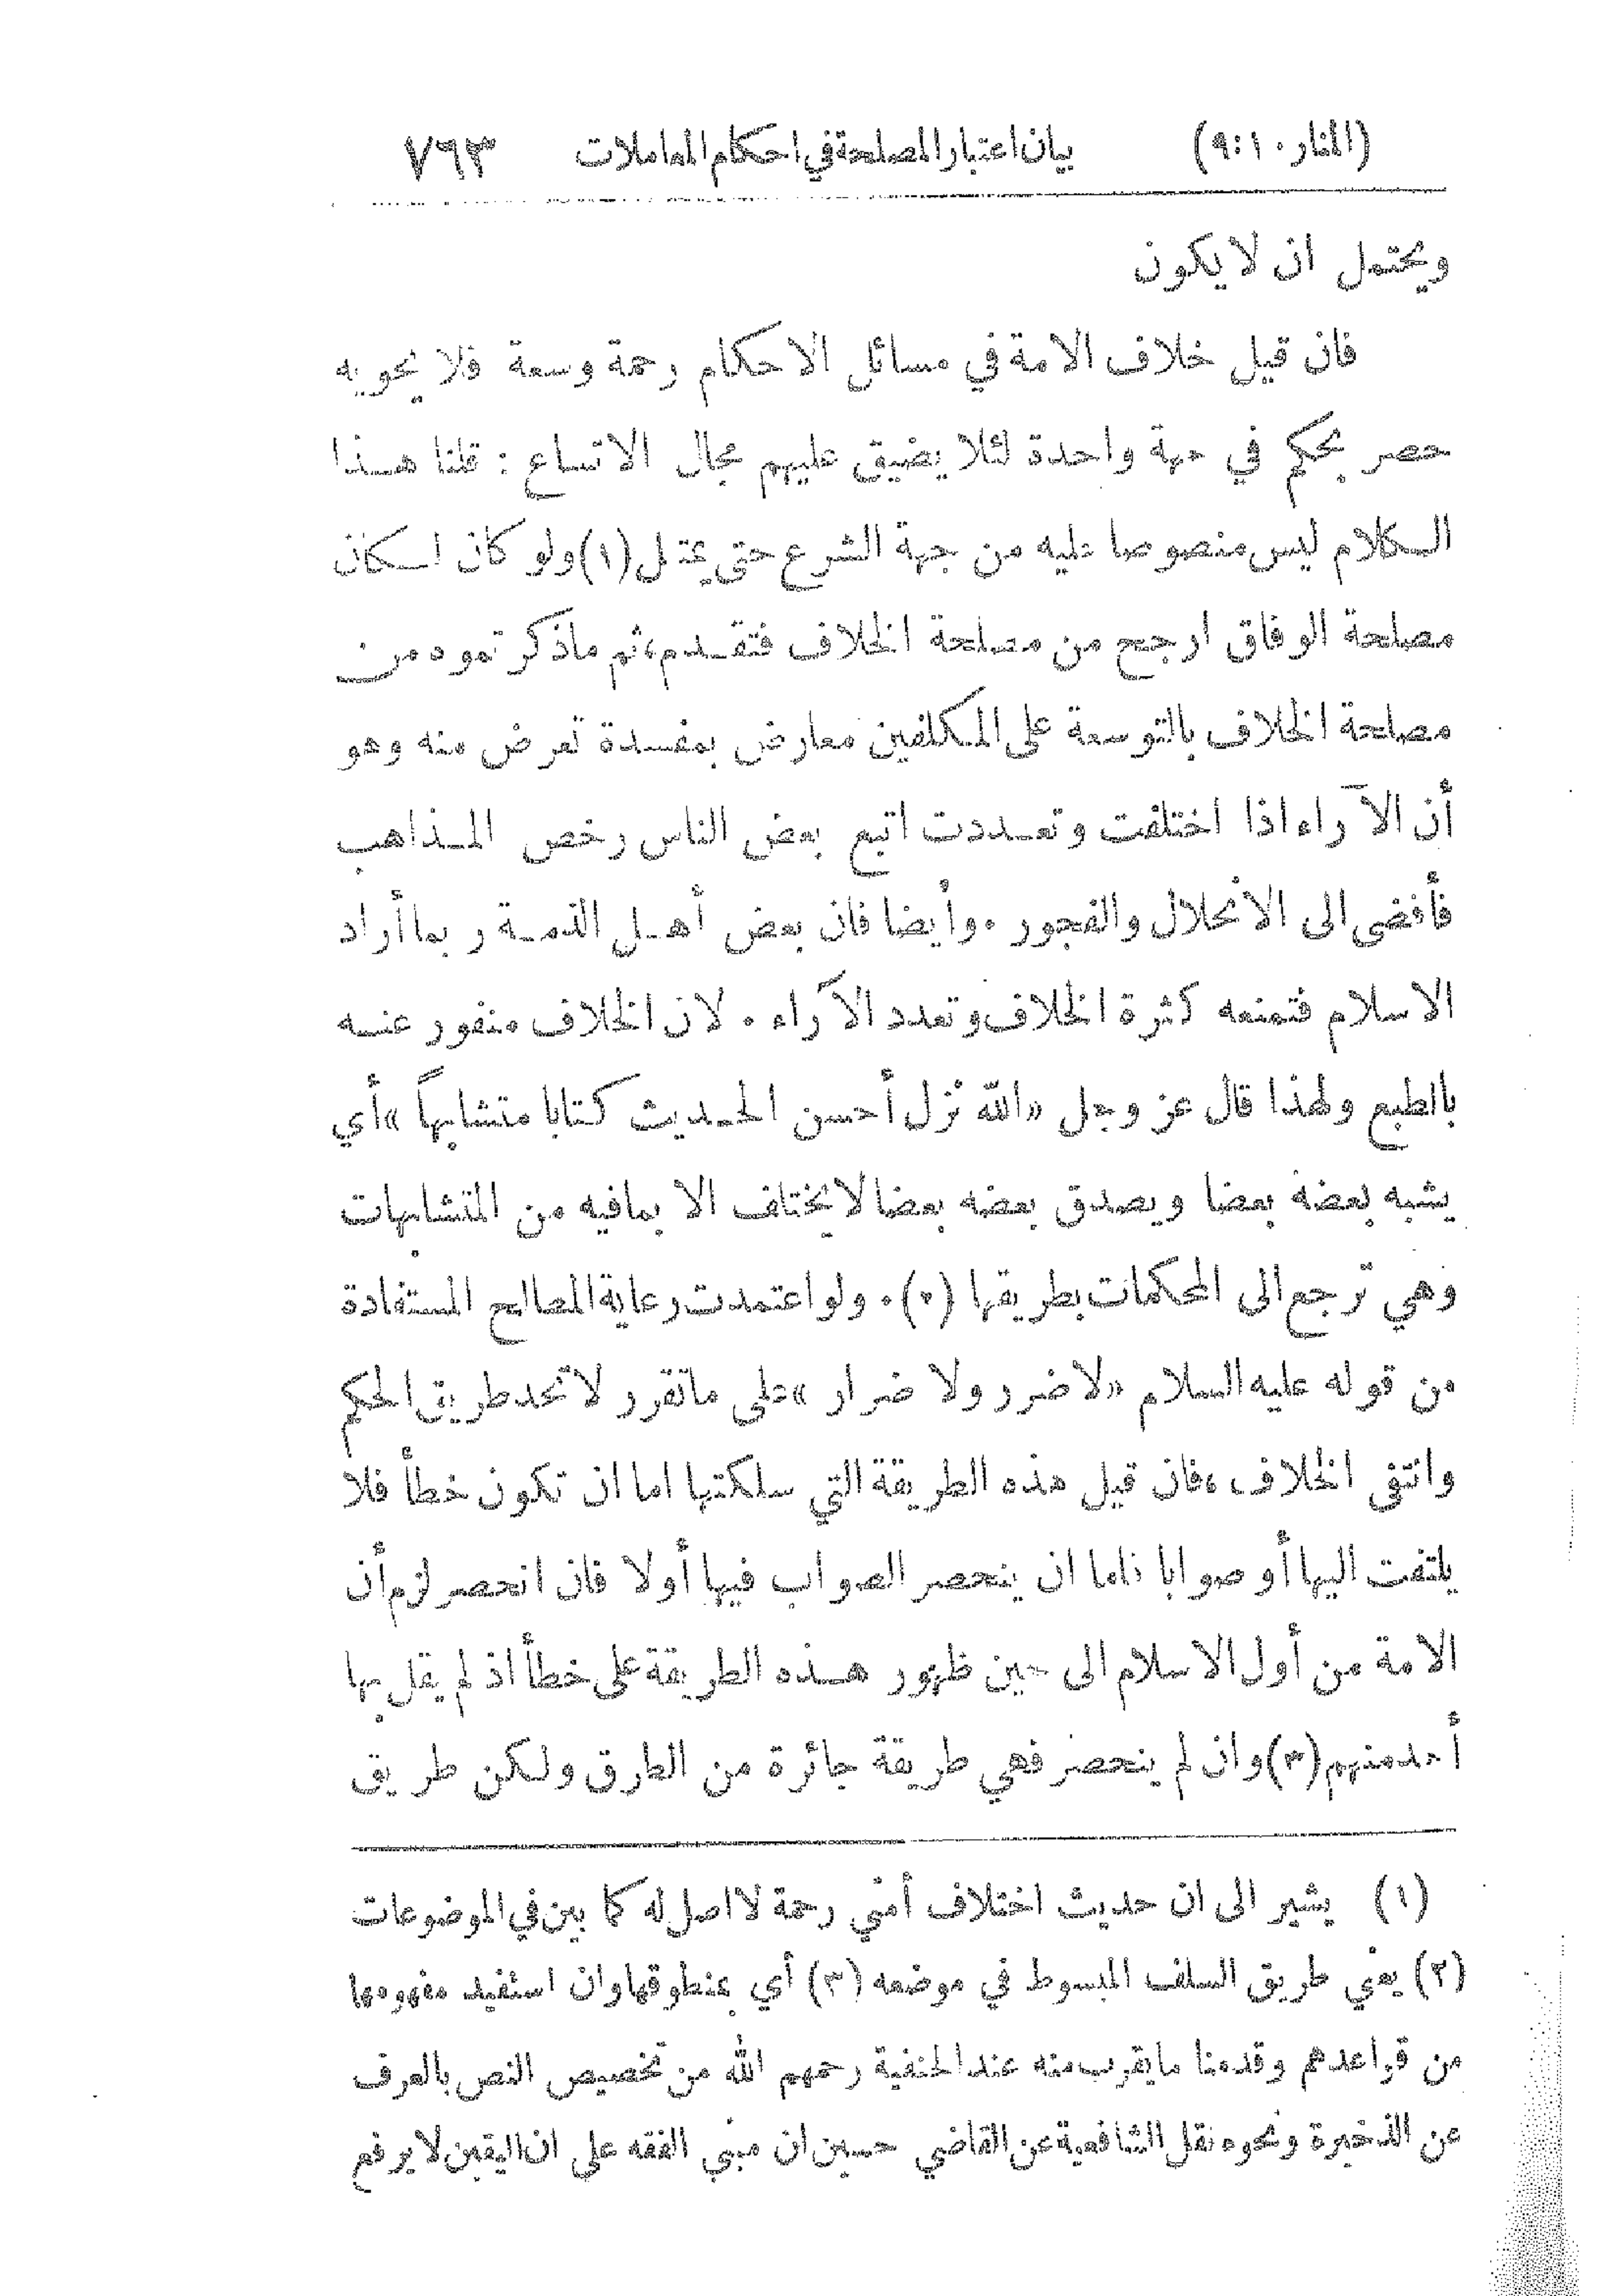 (المنار ١٠:٩) بيان اعتبار المصلحة في احكام المعاملات ٧٦٣
ويحتمل ان لا يكون
فان قيل خلاف الامة في مسائل الاحكام رحمة وسعة فلا يحويه
حصر بحكم في جهة واحدة لئلا يضيق عليهم مجال الاتساع : قلنا هـذا
الـكلام ليس منصوصا عليه من جهة الشرع حتى يمتثل (١) ولو كان لـكان
مصلحة الوفاق ارجح من مصلحة الخلاف فتقـدم، ثم ماذكرتموه من
مصلحة الخلاف بالتوسعة على المـكلفين معارض بمفسدة تعرض منه وهو
أن الآراء اذا اختلفت وتعـددت اتبع بعض الناس رخص المـذاهب
فأفضى الى الانحلال والفجور . وأيضا فان بعض أهـل الذمـة ربما أراد
الاسلام فتمنعه كثرة الخلاف وتعدد الآراء . لان الخلاف منفور عنـه
بالطبع ولهذا قال عز وجل «الله نزل أحسن الحـديث كتابا متشابهاً» أي
يشبه بعضه بعضا ويصدق بعضه بعضا لا يختلف الا بمافيه من المتشابهات
وهي ترجع الى المحكمات بطريقها (٢) . ولو اعتمدت رعاية المصالح المستفادة
من قوله عليه السلام «لا ضرر ولا ضرار» على ماتقرر لاتحد طريق الحكم
وانتفى الخلاف ، فان قيل هذه الطريقة التي سلكتها اما ان تكون خطأ فلا
يلتفت اليها أو صوابا فاما ان ينحصر الصواب فيها أولا فان انحصر لزم أن
الامة من أول الاسلام الى حين ظهور هـذه الطريقة على خطأ اذ لم يقل بها
أحد منهم (٣) وان لم ينحصر فهي طريقة جائزة من الطرق ولـكن طريق
(١) يشير الى ان حديث اختلاف أمتي رحمة لا اصل له كما بين في الموضوعات
(٢) يعني طريق السلف المبسوط في موضعه (٣) أي بمنطوقها وان استفيد مفهومها
من قواعدهم وقدمنا ما يقرب منه عند الحنفية رحمهم الله من تخصيص النص بالعرف
عن الذخيرة ونحوه نقل الشافعية عن القاضي حسين ان مبنى الفقه على ان اليقين لا يرفع